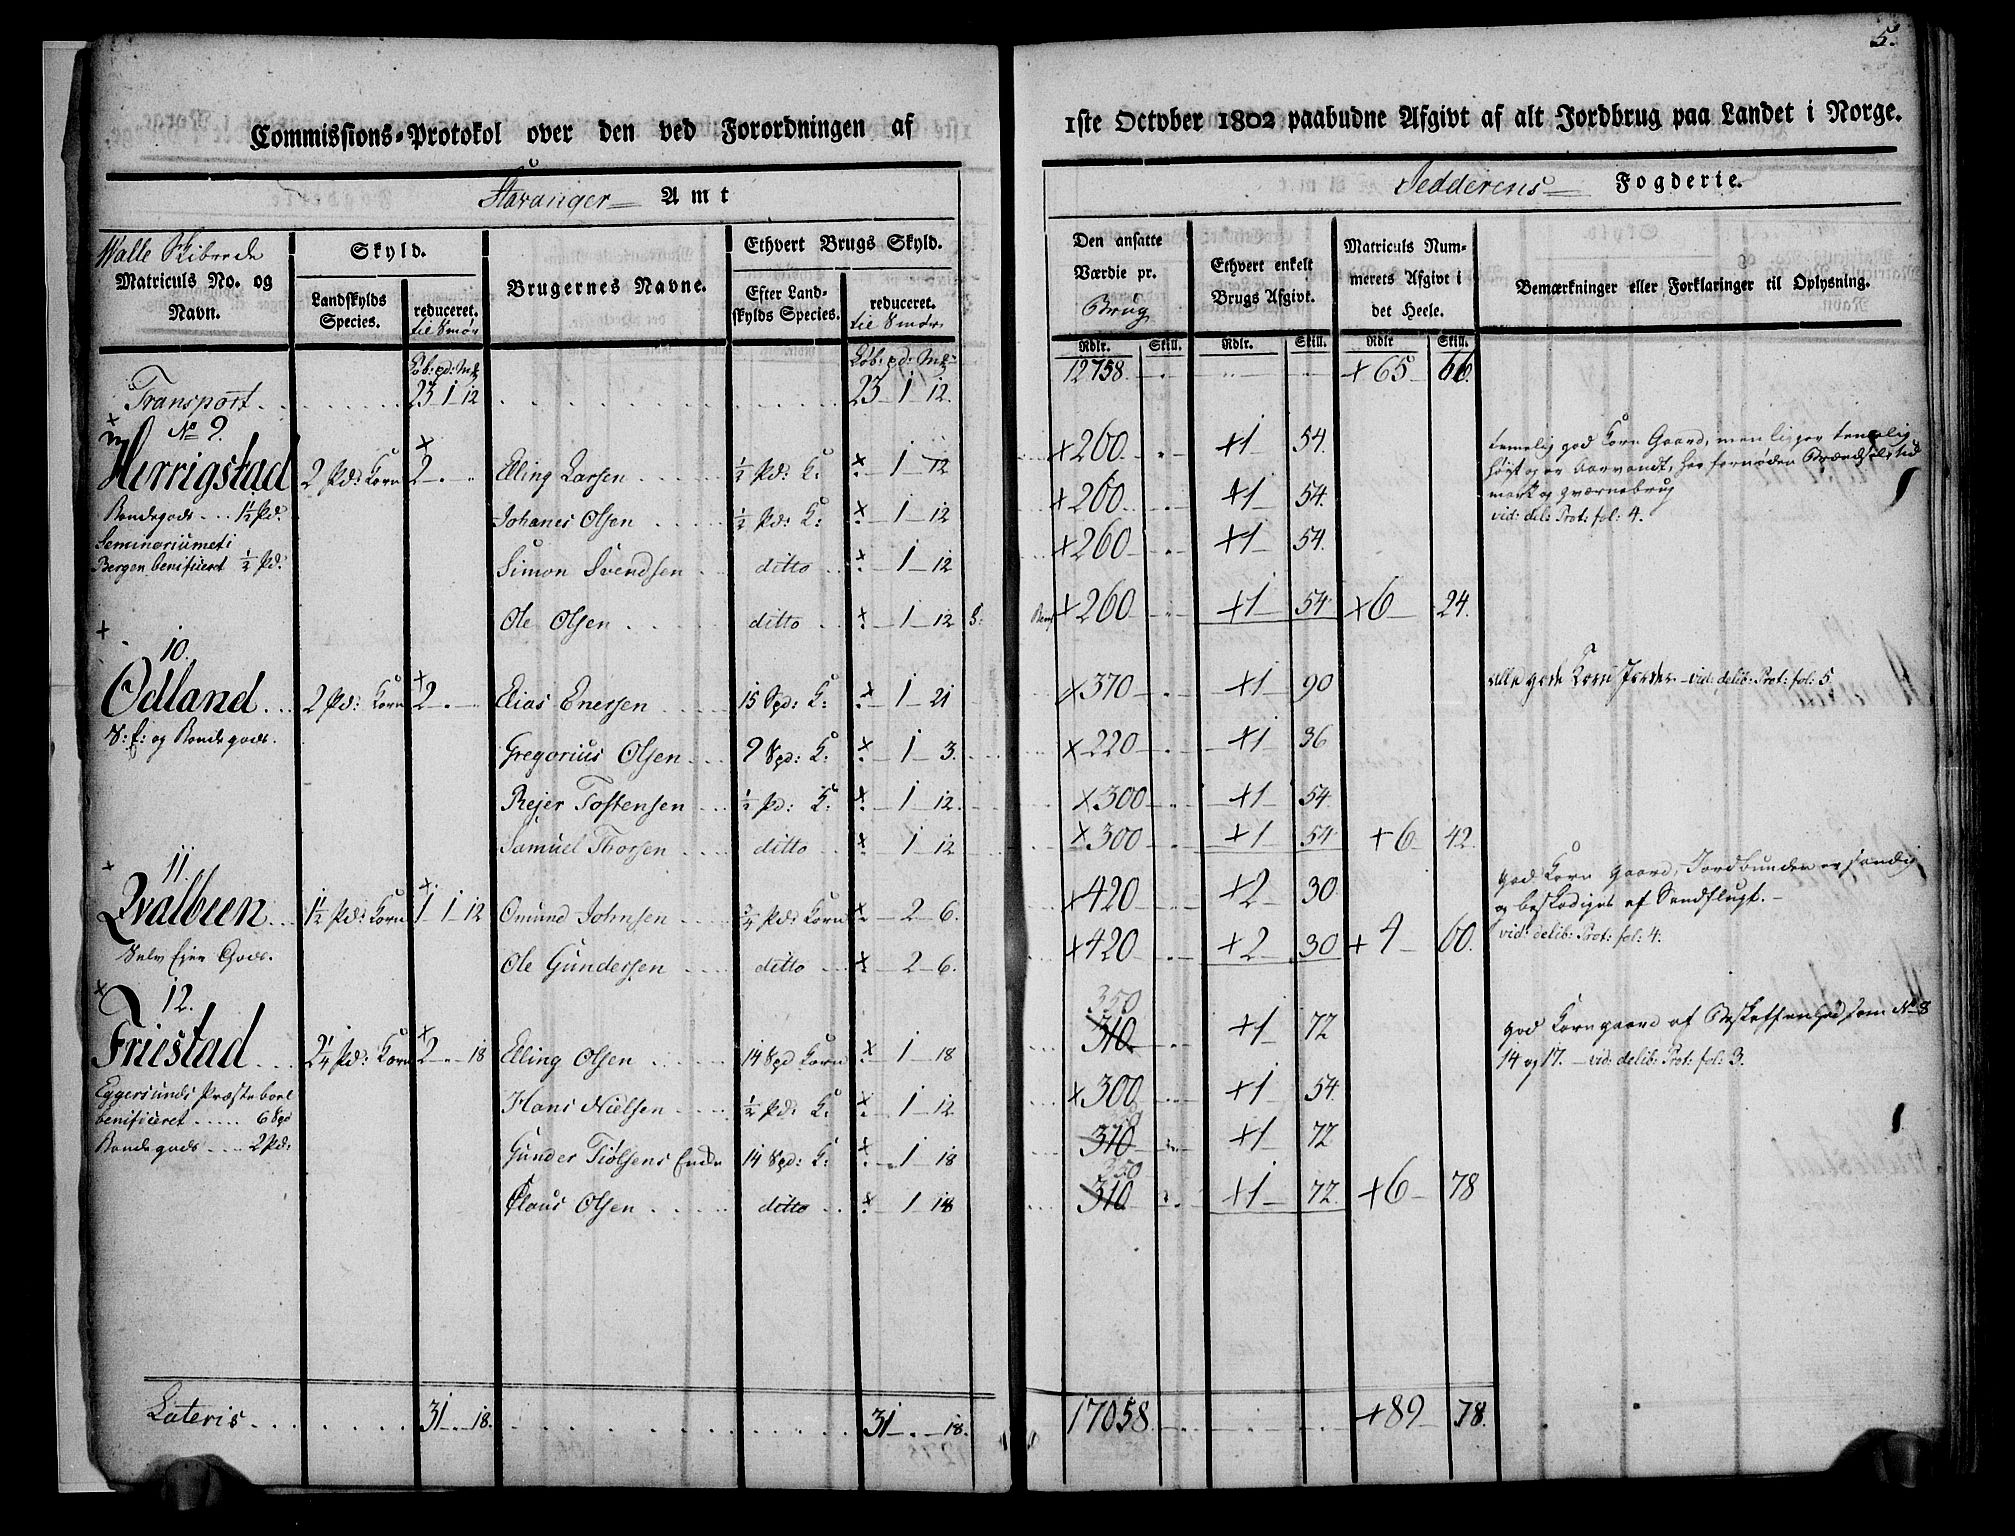 5.
Commissions-Protokol over den ved Forordningen af 1ste October 1802 paabudne Afgivt af alt Jordbrug paa Landet i Norge.
Stavanger Amt
Jedderens Fogderie.
Walle Skibrede
Matriculs No. og Navn.
Skyld.
Landskylds Species.
reduceret. til Smør
Brugernes Navne.
Ethvert Brugs Skyld.
Efter Landskylds Species.
reduceret. til Smør
Den ansatte Værdie pr. Brug
Ethvert enkelt Brugs Afgivt.
Matriculs Nummerets Afgivt i det Heele.
Bemærkninger eller Forklaringer til Oplysning.
Løb: pd: Mk Løb: pd: Mk Rdlr. Skill. Rdlr. Skill. Rdlr Skill.
Transport 23 1 12 23 1 12. 12758 +65 66.
No 9.
Herrigstad 2 Pd: Korn 2 Elling Larsen ½ Pd: K: 1 12 +260. +1 54.
Bondegods 1½ Pd: Johanes Olsen ½ Pd: K: 1 12 +260 +1 54.
Seminariumet i
Bergen benificeret ½ Pd: Simon Svendsen ditto 1 12 +260 +1 54.
Ole Olsen ditto 1 12 +260 +1 54 +6 24.
temelig god Korn Gaard, men ligger temelig
høyt og er
mark og qværnebrug
vid: del: Prot: fol: 4.
10.
Odland 2 Pd: Korn 2 Elias Enersen 15 Spd: K: 1 21 +370 +1 90
S: E: og Bondegods. Gregorius Olsen 9 Spd: K: 1 3. +220 +1 36
Rejer Tostensen ½ Pd: K: 1 12. +300 +1 54
Samuel Thorsen ditto 1 12 +300 +1 54 +6 42
alle gode Korn Jorder vid: delib: Prot: fol: 5
11.
Qvalbeen 1½ Pd: Korn 1 1 12 Omund Johnsen ¾ Pd: Korn 2 6. +420 +2 30
Selv Ejer Gods. Ole Gundersen ditto 2 6. +420 +2 30 +4 60.
god Korn Gaard, Jordbunden er sandig
og beskadiges af Sandflugt.
vid: delib: Prot: fol: 4.
12.
Friestad 2¼ Pd: Korn 2 18 Elling Olsen 14 Spd Korn 1 18 310 350 +1 72
Eggersunds Præstebord Hans Nielsen ½ Pd: K: 1 12 +300 +1 54.
benificeret 6 Spd
Bondegods 2 Pd: Gunder Tiølsens Enke 14 Spd: K: 1 18 310 350 +1 72
Claus Olsen ditto 1 18 310 350 +1 72 +6 78
god Korngaard af Beskaffenhed som No 8
14 og 17. vid: delib: Prot: fol: 3.
Lateris 31 18. 31 18. 17058 +89 78.